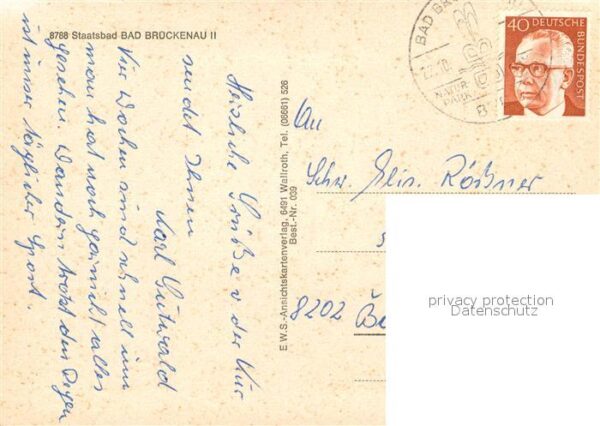 8788 Staatsbad BAD BRÜCKENAU II
Herzliche Grüße v. der Kur
sendet Ihnen
Karl Gutwald
Vier Wochen sind schnell um
man hat noch gar nicht alles
gesehen. Wandern trotz den Regen
ist unser täglicher Sport.
E.W.S.-Ansichtskartenverlag, 6491 Wallroth, Tel. (06661) 526
Best.-Nr. 039
BAD BR
NATUR
PARK
40 DEUTSCHE
BUNDESPOST
An
Schw. Elis. Rößner
8202 B
privacy protection
Datenschutz